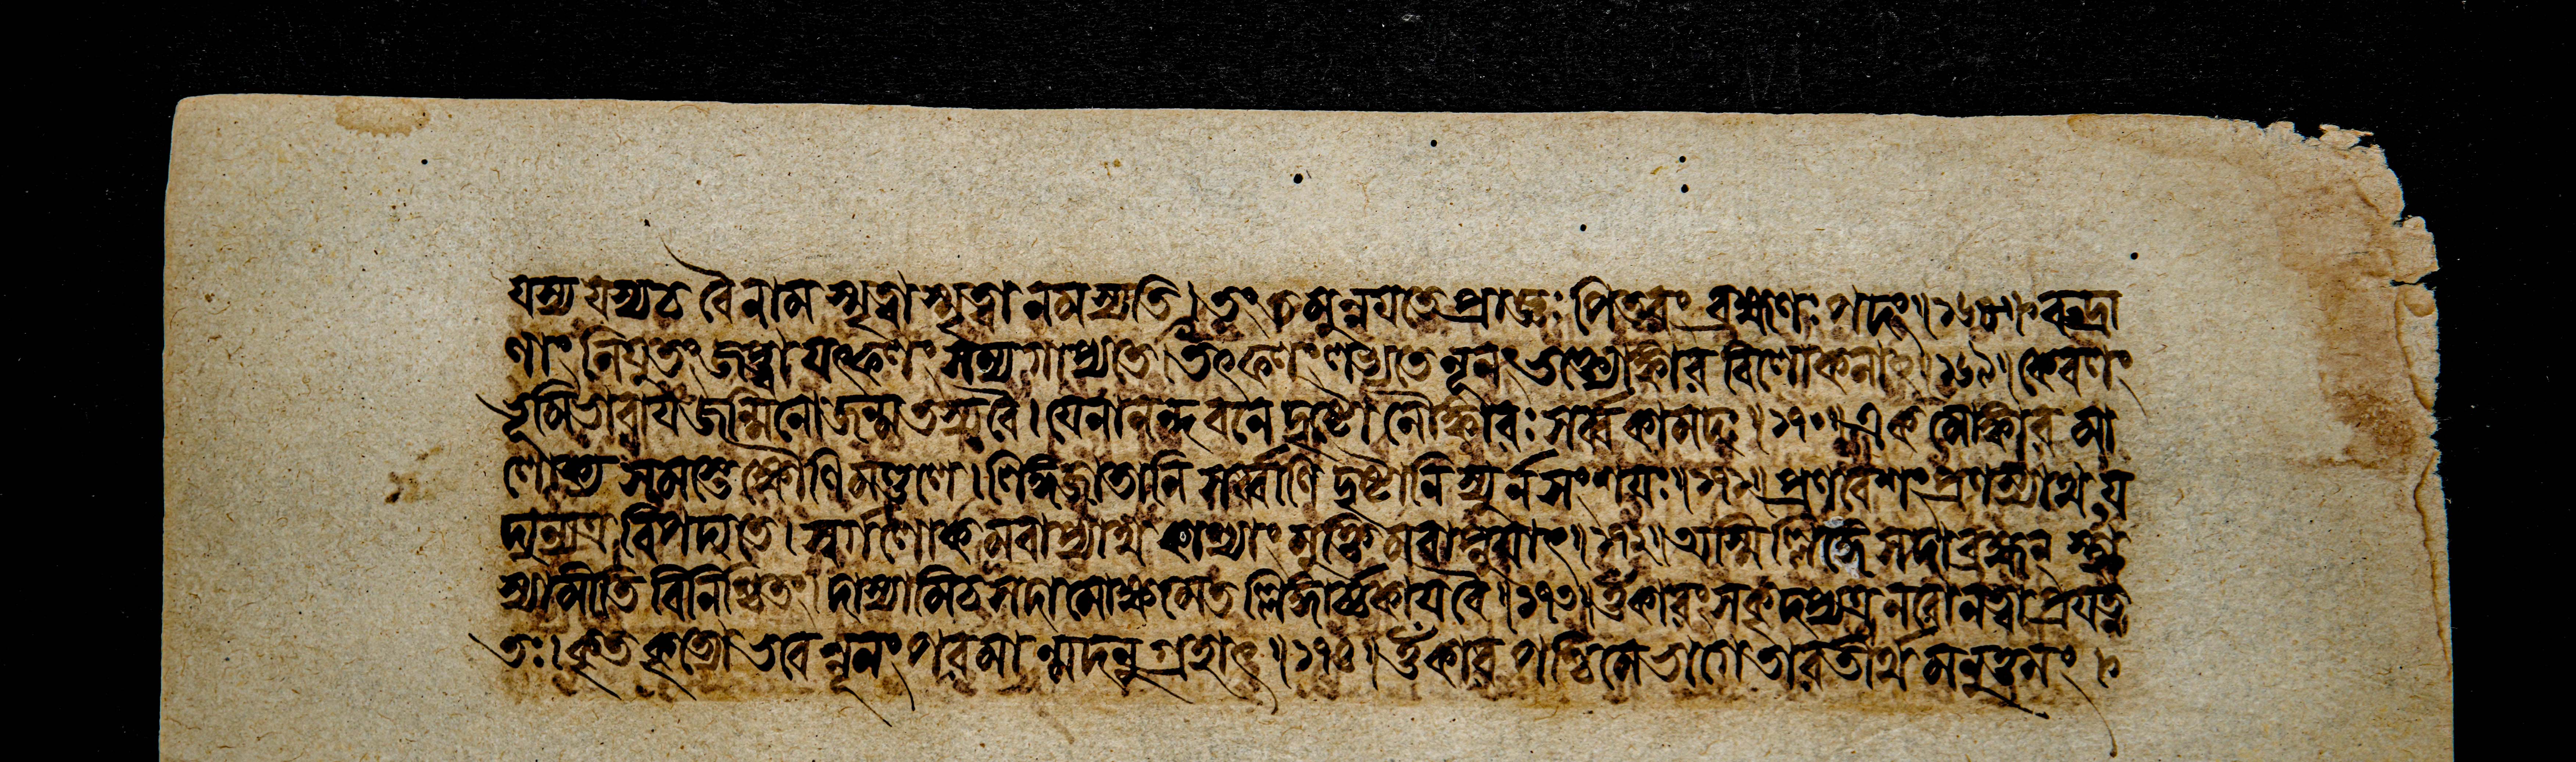 যস্য যস্য চ বৈ নাম স্মৃত্বা স্মৃত্বা নমস্যতি। তং তমুন্নযতে প্রাজ্ঞঃ পিতরং ব্রহ্মণঃ পদং॥১৬৮॥ রুদ্রা
ণাং নিযুতং জপ্ত্বা যৎফলং সম্যগাপ্যতে। তৎফলং লভ্যতে নূনং ভক্ত্যোঙ্কার বিলোকনাৎ॥১৬৯॥ কেবলং
ভূমিভারায জন্মিনো জন্ম তস্য বৈ। যেনানন্দবনে দৃষ্টো নৌঙ্কারঃ সর্ব্বকামদঃ॥১৭০॥ একমোঙ্কারমা
লোক্য সমস্তে ক্ষৌণিমণ্ডলে। লিঙ্গজাতানি সর্ব্বাণি দৃষ্টানি স্যুর্ন সংশযঃ॥১৭১॥ প্রণবেশং প্রণম্যাথ য
দ্যন্যত্র বিপদ্যতে। স্বর্গলোকমবাপ্যাথ কাশ্যাং মুক্তিমবাপ্নুযাৎ॥১৭২॥ অস্মিল্লিঙ্গে সদা ব্রহ্মন্ স্থা
স্যামীতি বিনিশ্চিতং। দাস্যামি চ সদা মোক্ষমেতল্লিঙ্গার্চ্চকায বৈ॥১৭৩॥ ওঁকারং সকৃদপ্যত্র নরো নত্বা প্রযত্ন
তঃ। কৃতকৃত্যো ভবেন্নূনং পরমান্মদনুগ্রহাৎ॥১৭৪॥ ওঁকার পশ্চিমে ভাগে তারতীর্থমনুত্তমং।